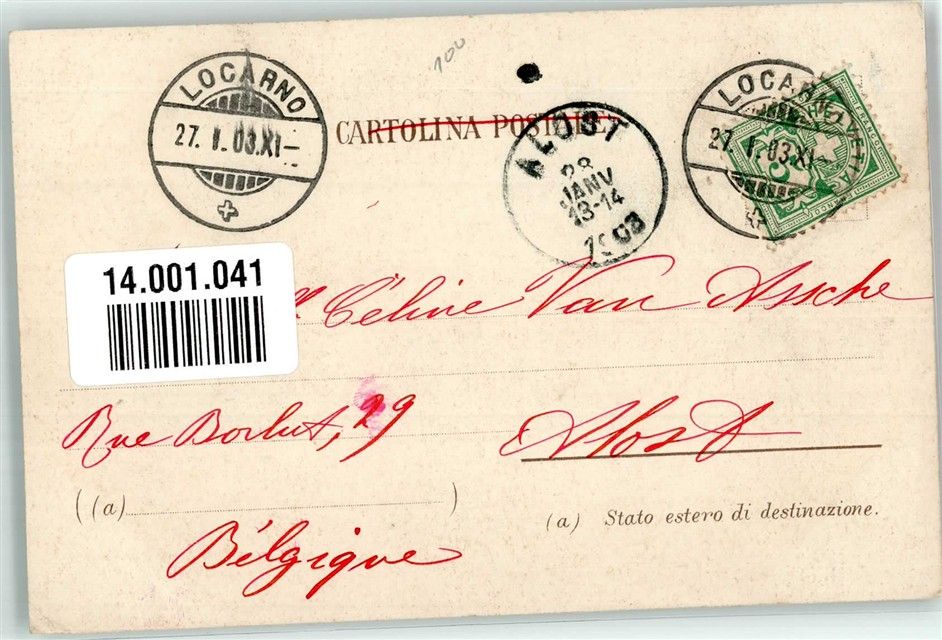 100
LOCARNO
27. I. 03.XI—
CARTOLINA POSTALE
ALOST
28
JANV
13-14
1903
LOCARNO
27. I. 03.XI—
HELVETIA
FRANCO
5
14.001.041
Céline Van Assche
Rue Borlut, 29
Alost
(a)
(a) Stato estero di destinazione.
Bélgique